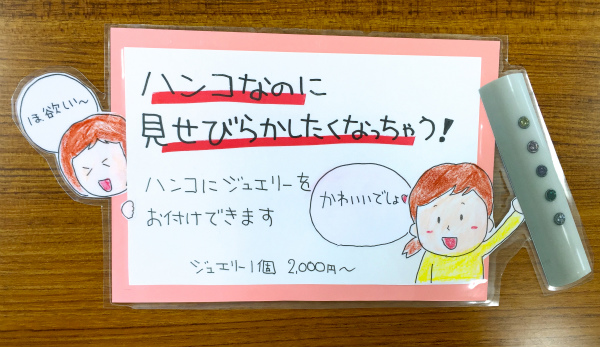 ほ、欲しい～
ハンコなのに
見せびらかしたくなっちゃう!
ハンコにジュエリーを
お付けできます
かわいいでしょ♥
ジュエリー1個 2,000円～